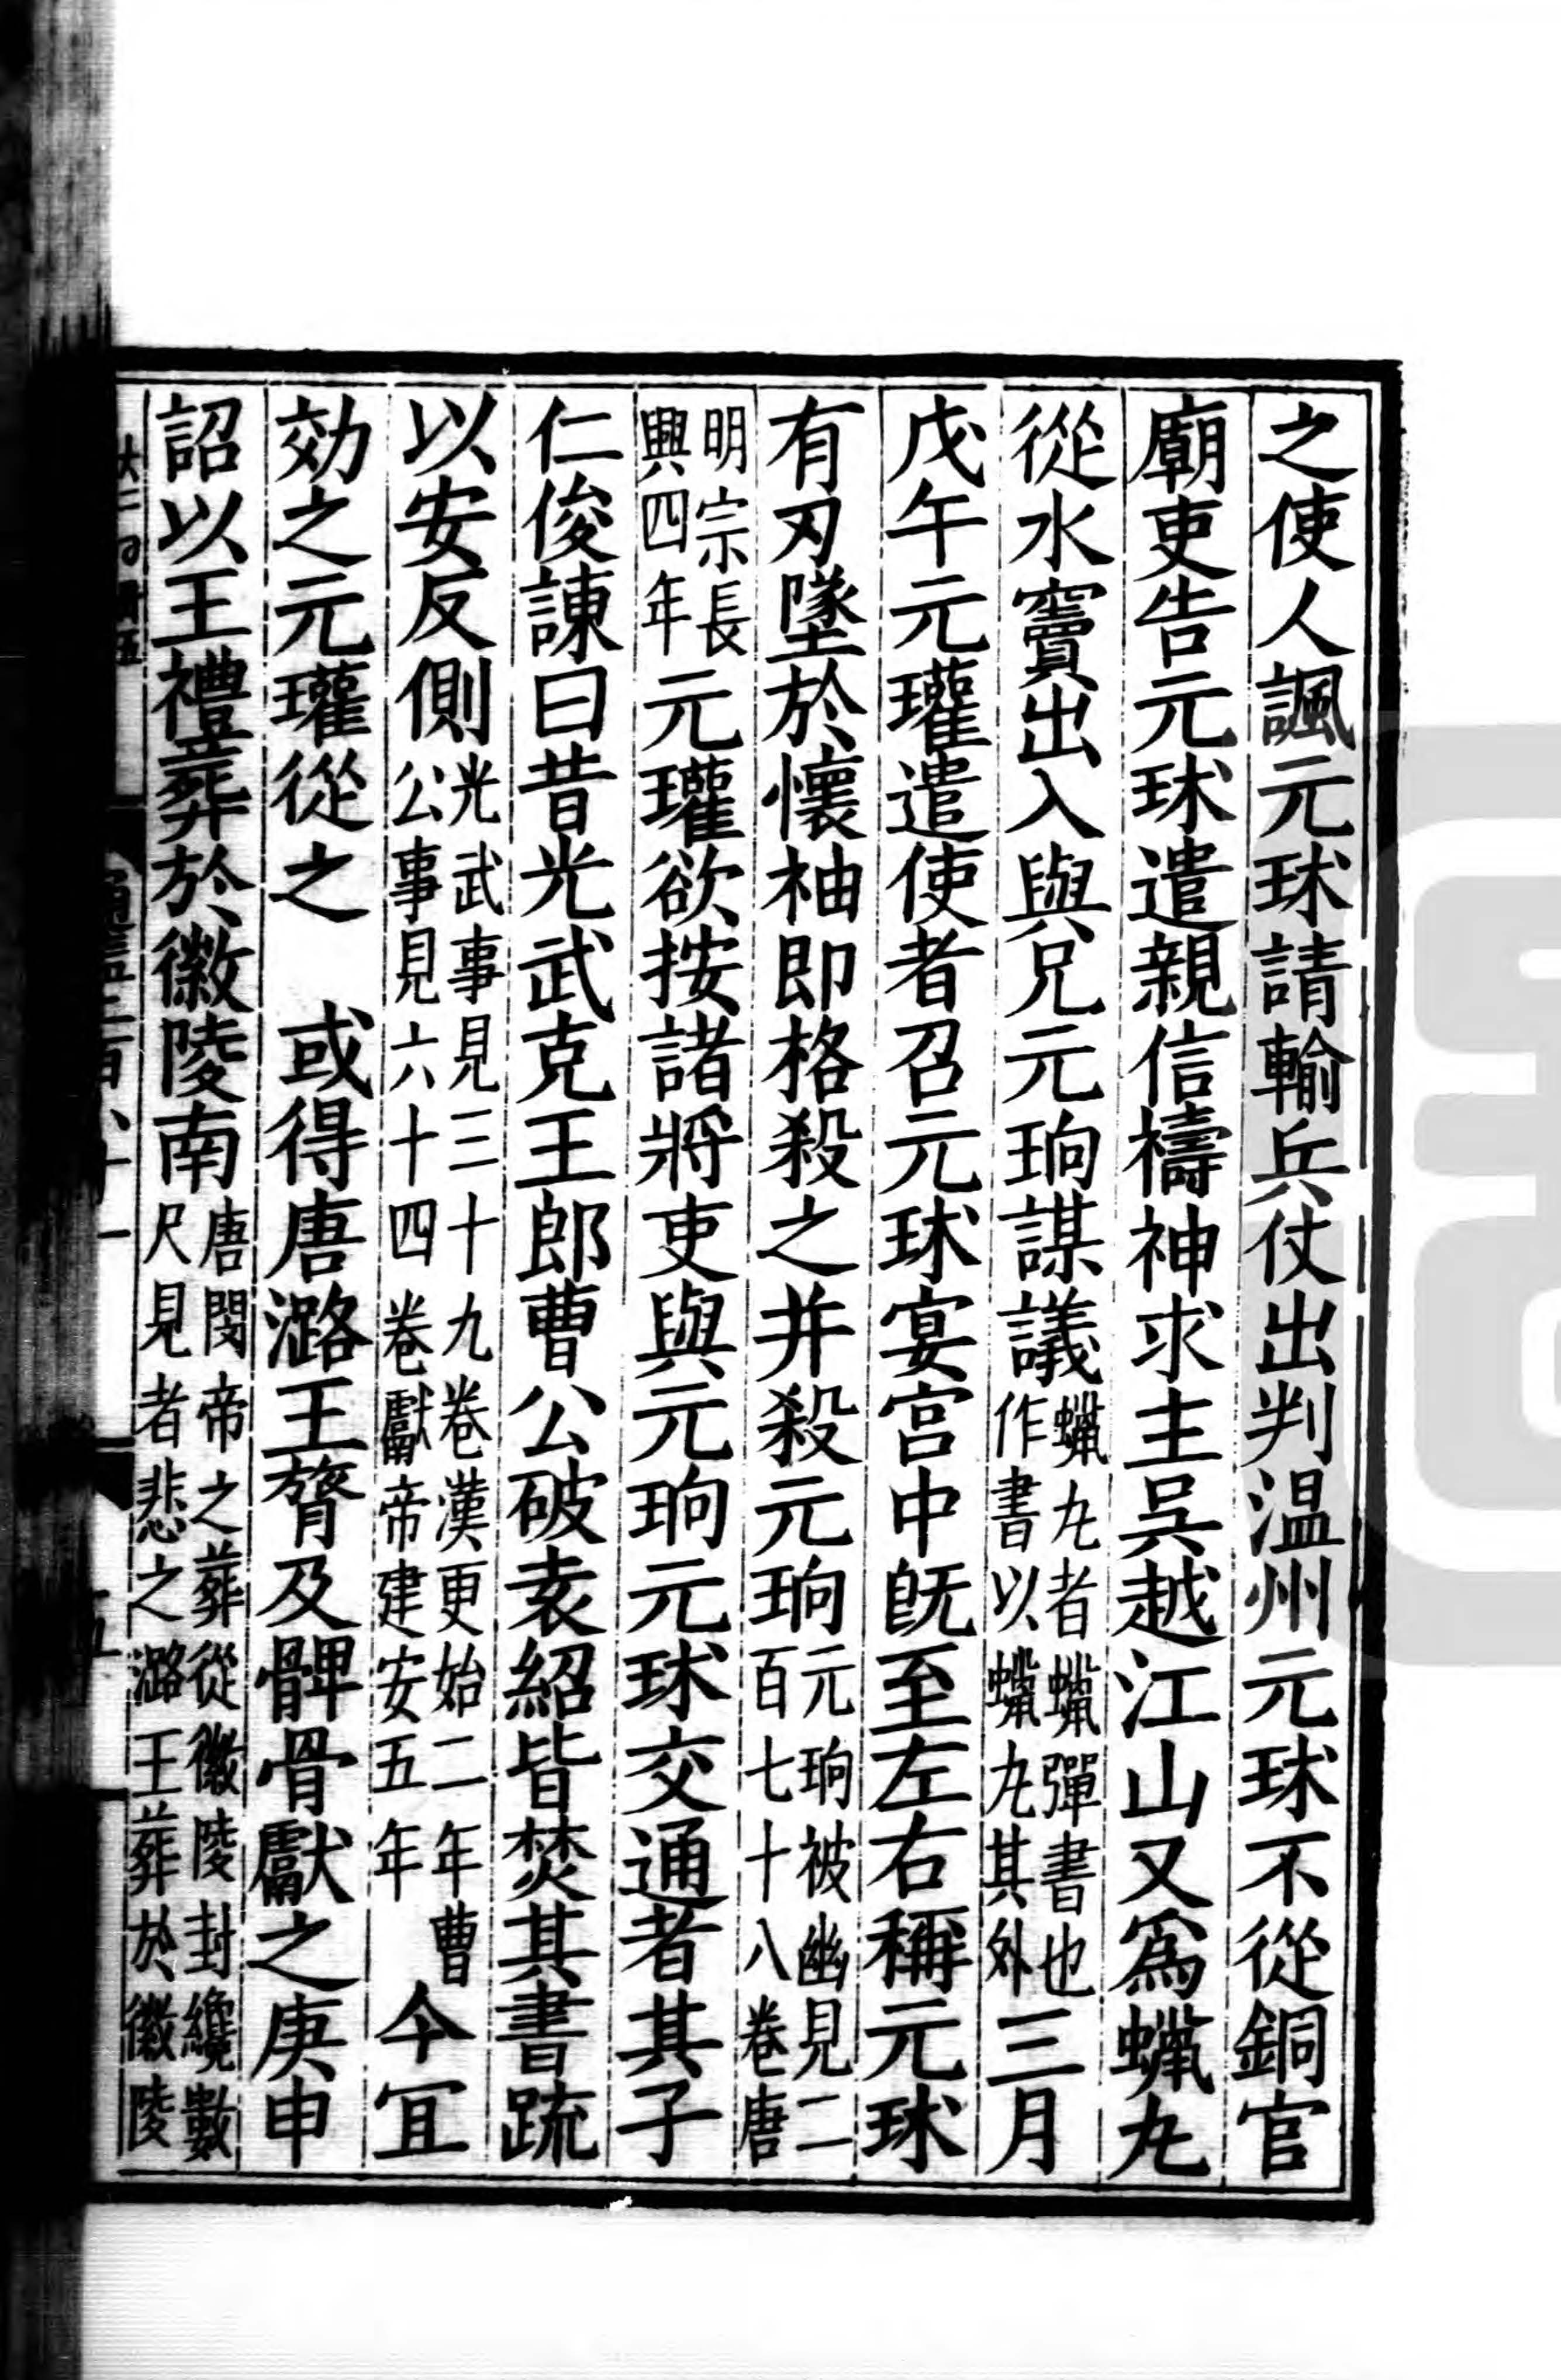 之使人諷元球請輸兵仗出判温州元球不從銅官
廟吏告元球遣親信禱神求主吳越江山又爲蠟丸
從水竇出入與兄元珦謀議蠟丸者蠟彈書也作書以蠟丸其外三月
戊午元瓘遣使者召元球宴宫中旣至左右稱元球
有刃墜於懷袖即格殺之并殺元珦元珦被幽見二百七十八卷唐
明宗長興四年元瓘欲按諸將吏與元珦元球交通者其子
仁俊諫曰昔光武克王郎曹公破袁紹皆焚其書疏
以安反側光武事見三十九卷漢更始二年曹公事見六十四卷獻帝建安五年今宜
効之元瓘從之 或得唐潞王膂及髀骨獻之庚申
詔以王禮葬於徽陵南唐閔帝之葬從徽陵封纔數尺見者悲之潞王葬於徽陵